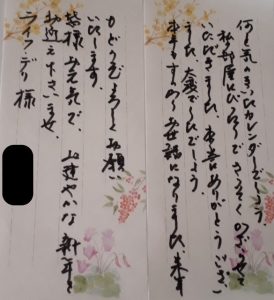 何と気のきいたカレンダーでしょう
私の部屋にぴったりでさっそくのせて
いただきました、本当にありがとうござい
ました、大変でしたでしょう
本年もすっかりお世話になりました、来年
もどうぞよろしくお願い
いたします。
皆様お元気で、お健やかな新年を
お迎え下さいませ、
ライフデリ様